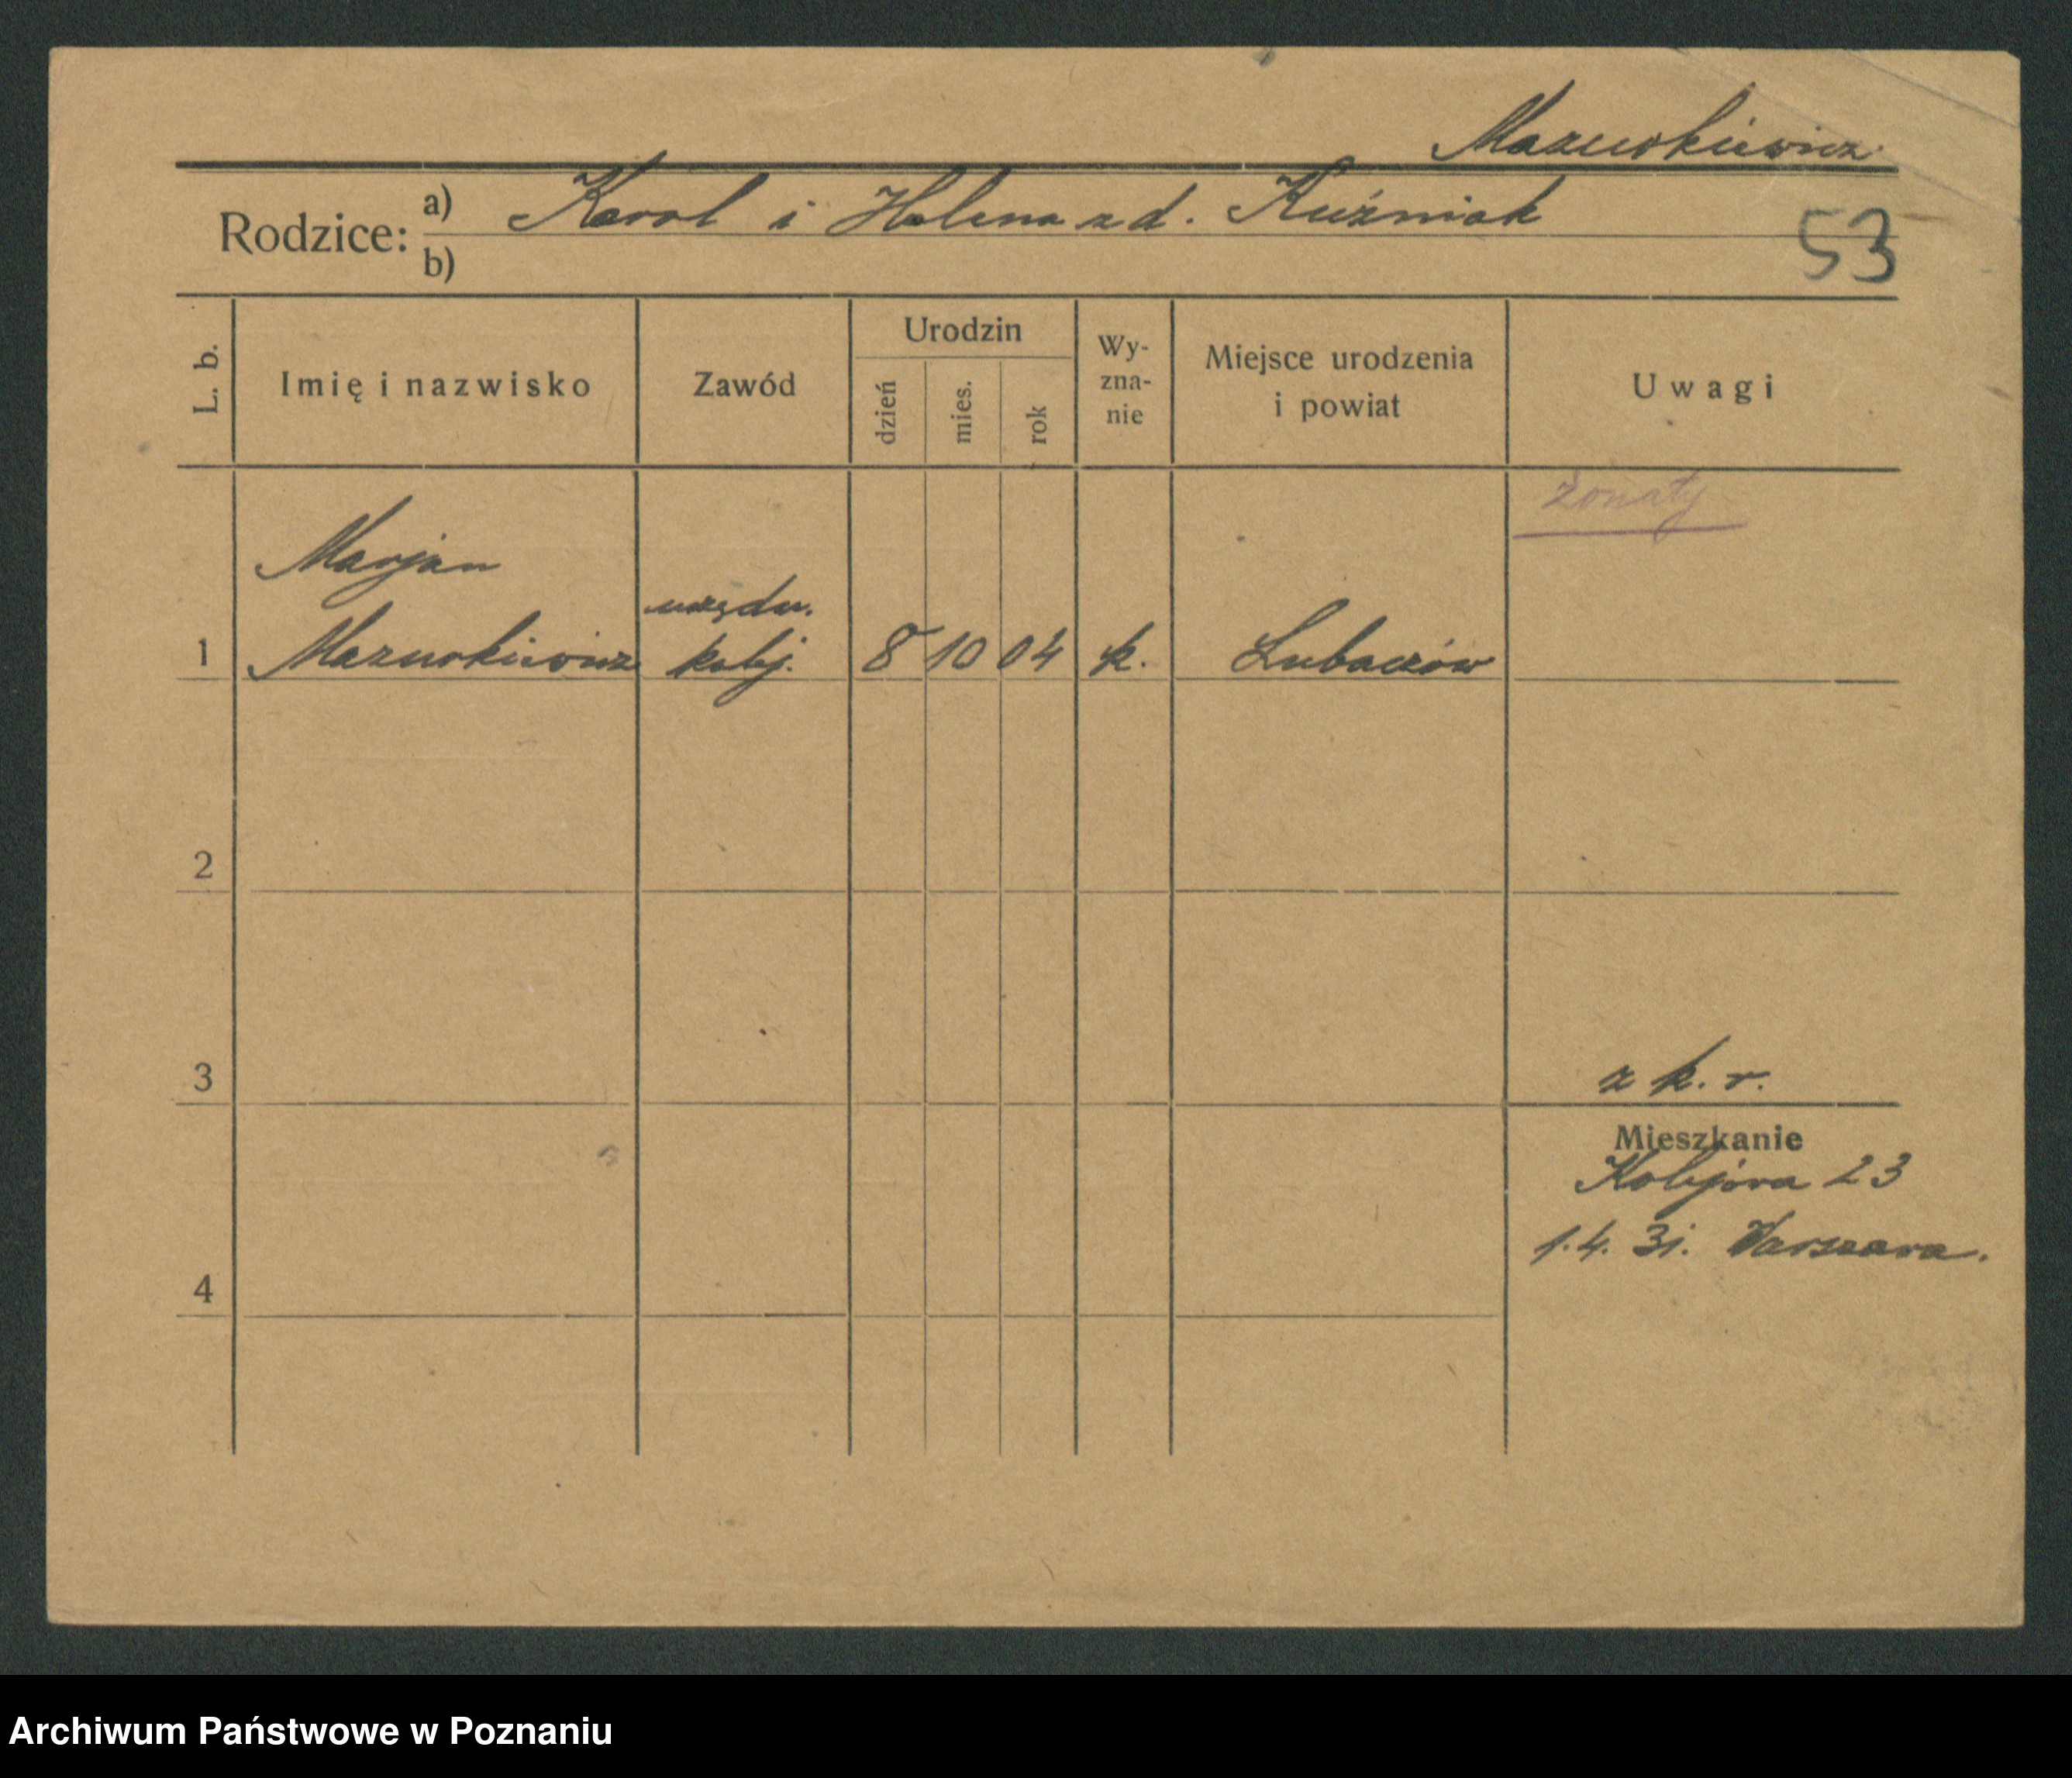 Mazurkiewicz
Rodzice: a) Karol i Helena z d. Kuźniak
b)
53
L. b. Imię i nazwisko Zawód Urodzin dzień mies. rok Wy-zna-nie Miejsce urodzenia i powiat Uwagi
żonaty
Marjan
urzędn.
1 Mazurkiewicz kolej. 8 10 04 k. Lubaczów
2
3 z k. r.
Mieszkanie
Kolejowa 23
1.4. 31. Warszawa.
4
Archiwum Państwowe w Poznaniu